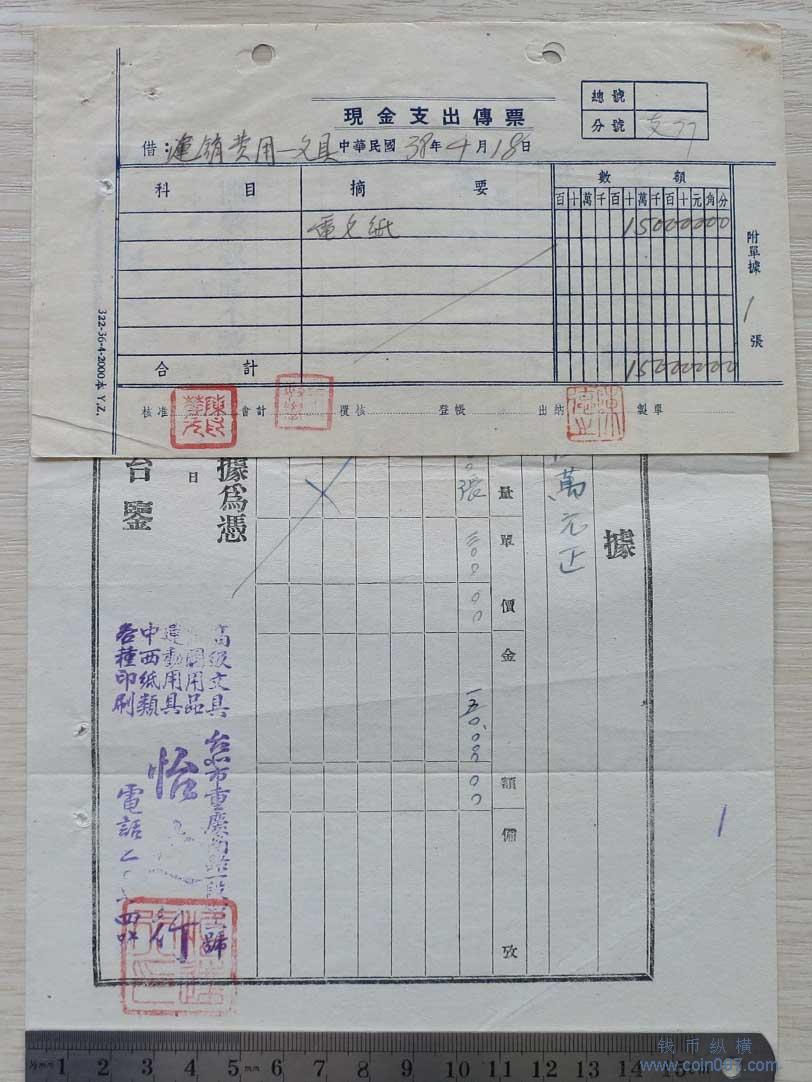 總號
現金支出傳票
分號 支77
借：運銷費用—文具 中華民國38年4月18日
科目 摘要 數額
百十萬千百十萬千百十元角分
電文紙 15000000
附單據1張
合計 15000000
核准 會計 覆核 登帳 出納 製單
322-36-4-2000本 Y.Z.
據
萬元正
量單價金額備攷
張 三〇〇 〇〇 一五〇.〇〇 〇〇
據為憑
日
台鑒
高級文具
用品
運動用具
中西紙類
各種印刷
市重慶南路一段 號
怡 行
電話
1
1 2 3 4 5 mm 6 7 8 9 10 11 12 13 14 15
钱币纵横
www.coin007.com